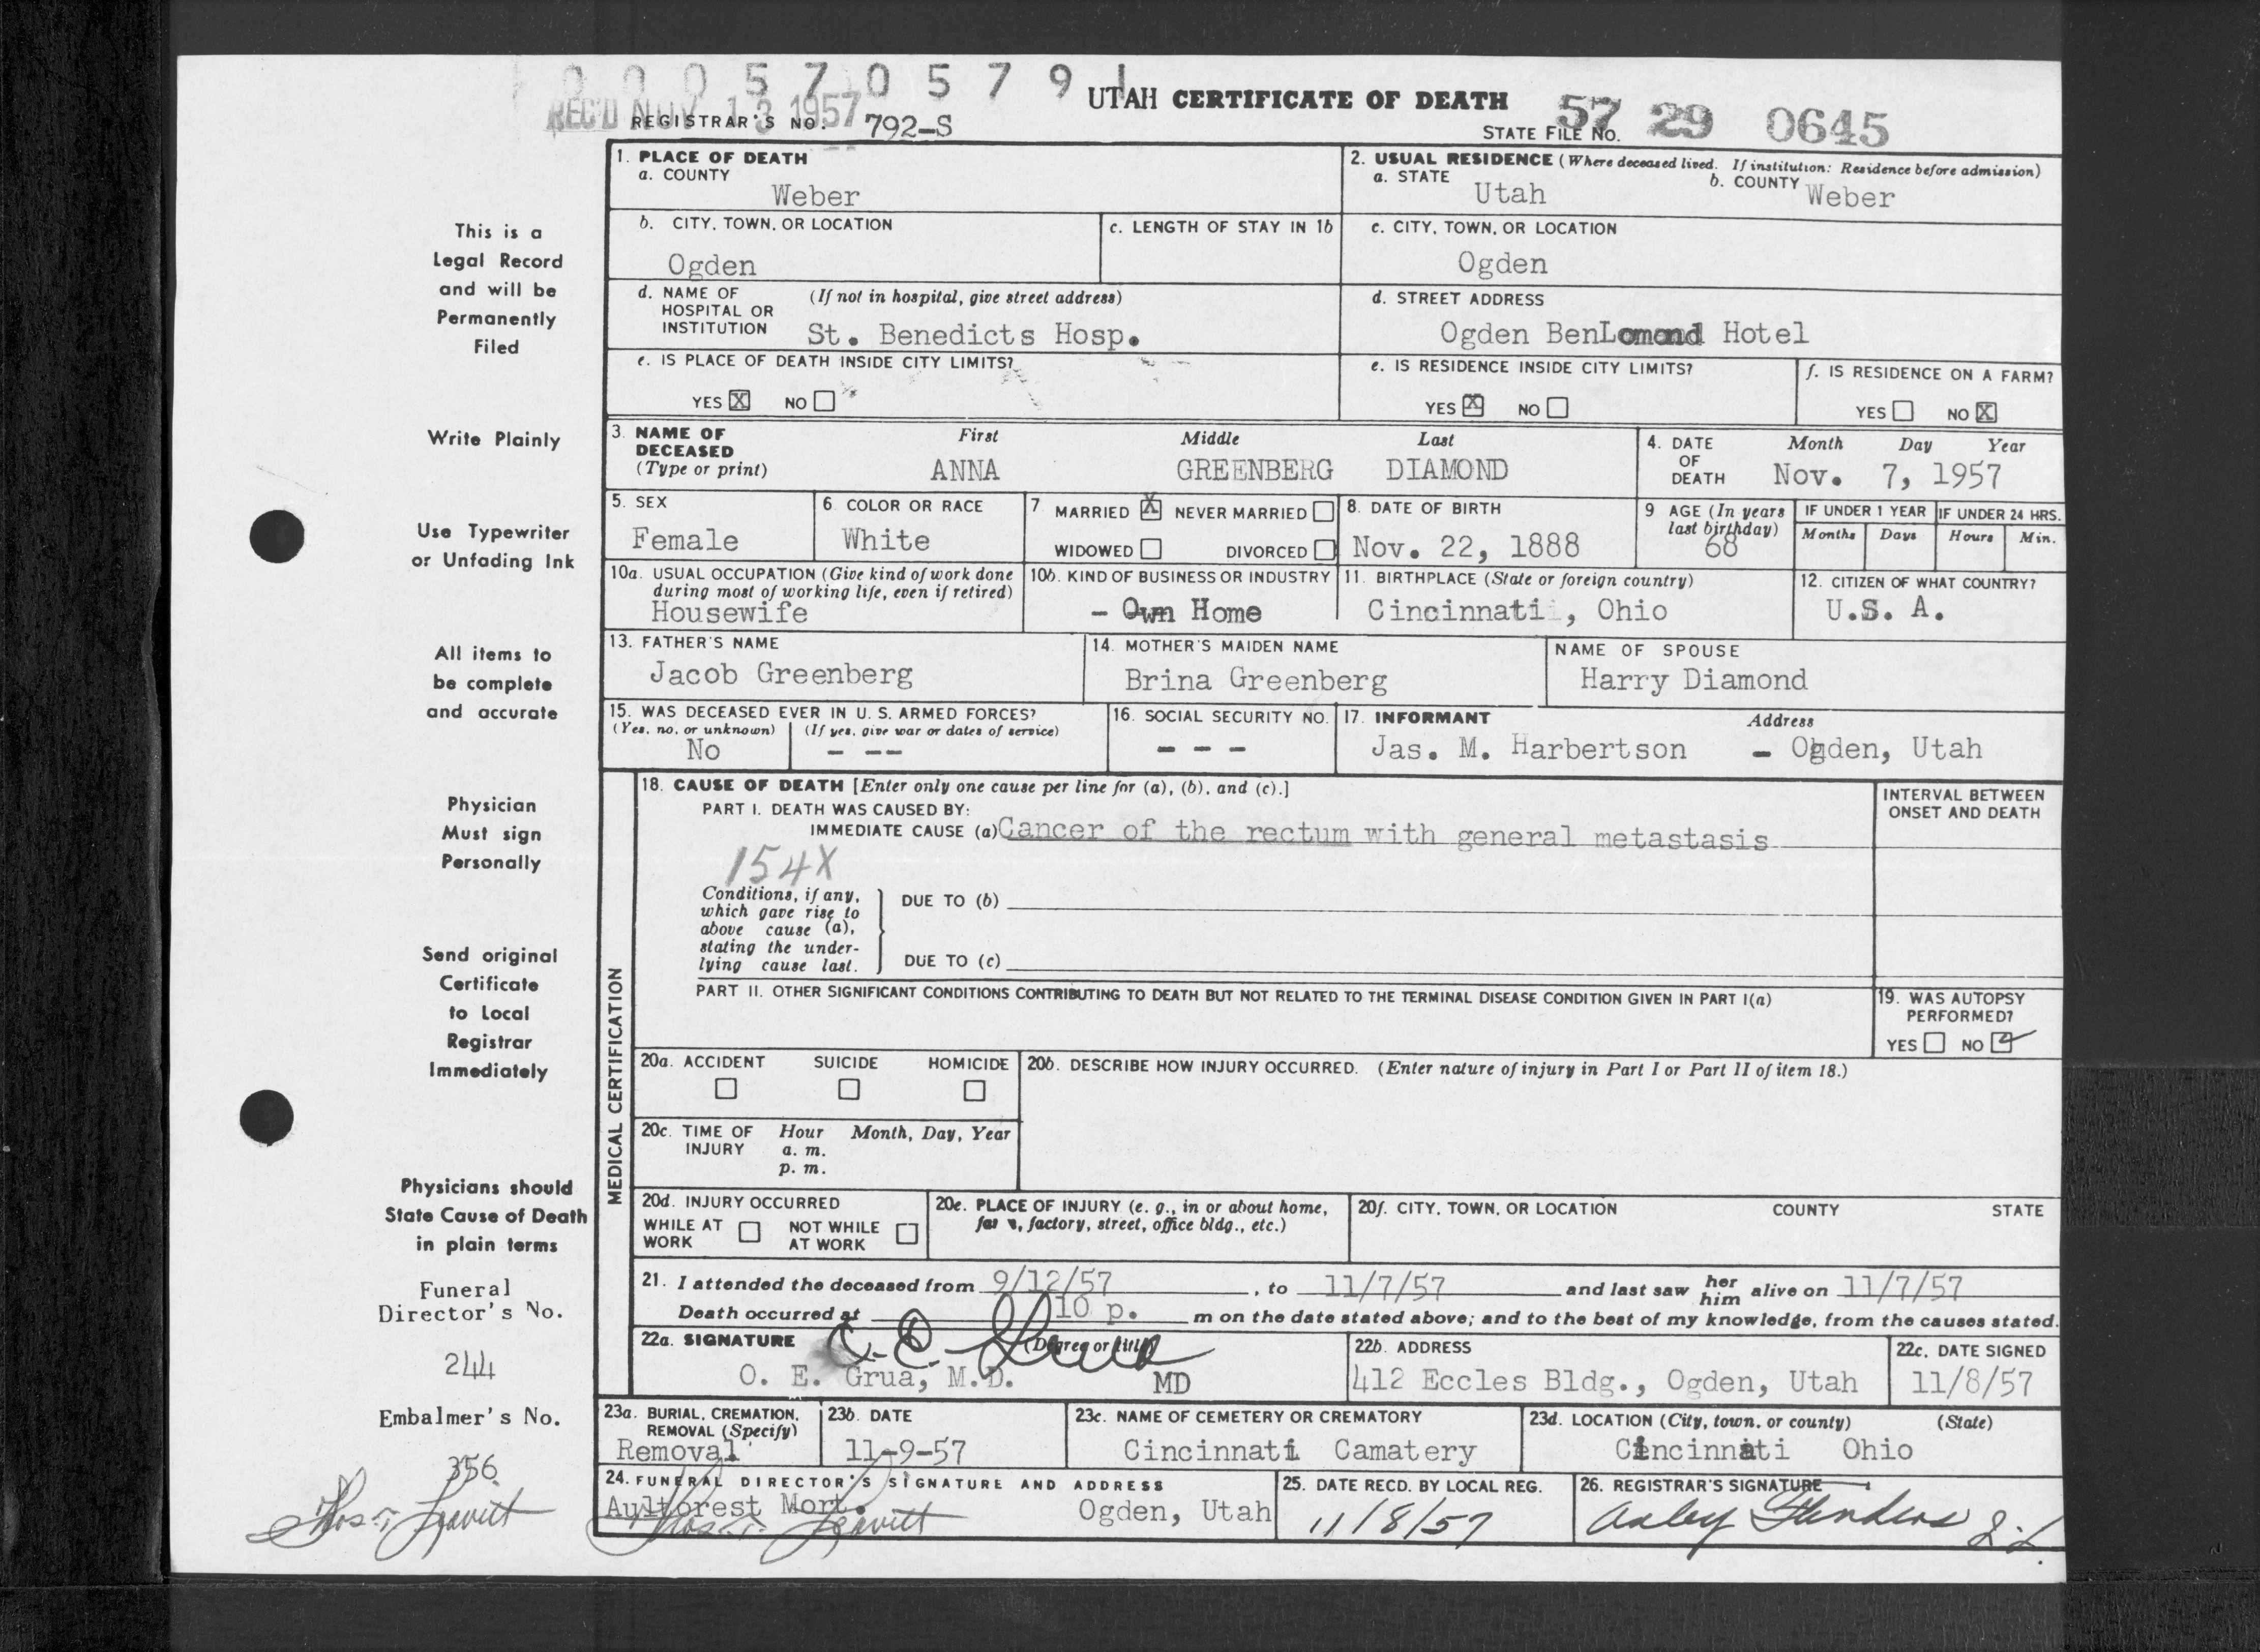 0 0 0 5 7 0 5 7 9 1
REC'D NOV 13 1957
UTAH CERTIFICATE OF DEATH
REGISTRAR'S NO. 792-S
STATE FILE NO. 57 29 0645
This is a
Legal Record
and will be
Permanently
Filed
Write Plainly
Use Typewriter
or Unfading Ink
All items to
be complete
and accurate
Physician
Must sign
Personally
Send original
Certificate
to Local
Registrar
Immediately
Physicians should
State Cause of Death
in plain terms
Funeral
Director's No.
244
Embalmer's No.
356
Thos. T. Leavitt
1. PLACE OF DEATH
a. COUNTY
Weber
2. USUAL RESIDENCE (Where deceased lived. If institution: Residence before admission)
a. STATE Utah b. COUNTY Weber
b. CITY, TOWN, OR LOCATION
Ogden
c. LENGTH OF STAY IN 1b
c. CITY, TOWN, OR LOCATION
Ogden
d. NAME OF (If not in hospital, give street address)
HOSPITAL OR
INSTITUTION St. Benedicts Hosp.
d. STREET ADDRESS
Ogden BenLomond Hotel
e. IS PLACE OF DEATH INSIDE CITY LIMITS?
YES X NO
e. IS RESIDENCE INSIDE CITY LIMITS?
YES X NO
f. IS RESIDENCE ON A FARM?
YES NO X
3. NAME OF DECEASED
(Type or print)
First Middle Last
ANNA GREENBERG DIAMOND
4. DATE OF DEATH
Month Day Year
Nov. 7, 1957
5. SEX
Female
6 COLOR OR RACE
White
7 MARRIED X NEVER MARRIED
WIDOWED DIVORCED
8. DATE OF BIRTH
Nov. 22, 1888
9 AGE (In years
last birthday)
68
IF UNDER 1 YEAR
Months Days
IF UNDER 24 HRS.
Hours Min.
10a. USUAL OCCUPATION (Give kind of work done
during most of working life, even if retired)
Housewife
10b. KIND OF BUSINESS OR INDUSTRY
- Own Home
11. BIRTHPLACE (State or foreign country)
Cincinnati, Ohio
12. CITIZEN OF WHAT COUNTRY?
U.S. A.
13. FATHER'S NAME
Jacob Greenberg
14. MOTHER'S MAIDEN NAME
Brina Greenberg
NAME OF SPOUSE
Harry Diamond
15. WAS DECEASED EVER IN U. S. ARMED FORCES?
(Yes, no, or unknown) (If yes, give war or dates of service)
No - --
16. SOCIAL SECURITY NO.
- - -
17. INFORMANT Address
Jas. M. Harbertson - Ogden, Utah
MEDICAL CERTIFICATION
18. CAUSE OF DEATH [Enter only one cause per line for (a), (b), and (c).]
PART I. DEATH WAS CAUSED BY:
IMMEDIATE CAUSE (a) Cancer of the rectum with general metastasis
INTERVAL BETWEEN
ONSET AND DEATH
154X
Conditions, if any,
which gave rise to
above cause (a),
stating the under-
lying cause last.
DUE TO (b)
DUE TO (c)
PART II. OTHER SIGNIFICANT CONDITIONS CONTRIBUTING TO DEATH BUT NOT RELATED TO THE TERMINAL DISEASE CONDITION GIVEN IN PART I(a)
19. WAS AUTOPSY
PERFORMED?
YES NO
20a. ACCIDENT SUICIDE HOMICIDE
20b. DESCRIBE HOW INJURY OCCURRED. (Enter nature of injury in Part I or Part II of item 18.)
20c. TIME OF INJURY
Hour Month, Day, Year
a. m.
p. m.
20d. INJURY OCCURRED
WHILE AT WORK NOT WHILE AT WORK
20e. PLACE OF INJURY (e. g., in or about home,
farm, factory, street, office bldg., etc.)
20f. CITY, TOWN, OR LOCATION COUNTY STATE
21. I attended the deceased from 9/12/57, to 11/7/57 and last saw her him alive on 11/7/57
Death occurred at 10 p. m on the date stated above; and to the best of my knowledge, from the causes stated.
22a. SIGNATURE (Degree or title)
O. E. Grua
O. E. Grua, M.D. MD
22b. ADDRESS
412 Eccles Bldg., Ogden, Utah
22c. DATE SIGNED
11/8/57
23a. BURIAL, CREMATION,
REMOVAL (Specify)
Removal
23b. DATE
11-9-57
23c. NAME OF CEMETERY OR CREMATORY
Cincinnati Camatery
23d. LOCATION (City, town, or county) (State)
Cincinnati Ohio
24. FUNERAL DIRECTOR'S SIGNATURE AND ADDRESS
Aultorest Mort. Ogden, Utah
Thos. T. Leavitt
25. DATE RECD. BY LOCAL REG.
11/8/57
26. REGISTRAR'S SIGNATURE